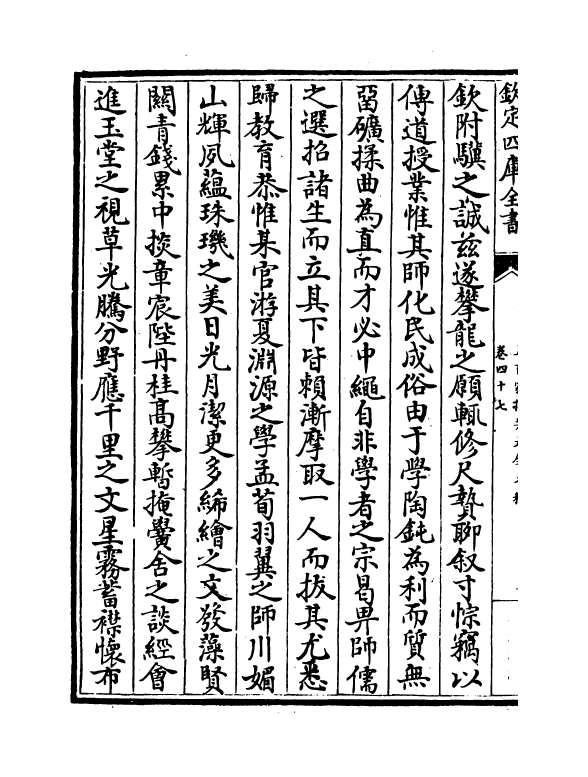 欽定四庫全書
卷四十七
欽附驥之誠兹遂攀龍之願輒修尺贄聊叙寸悰竊以
傳道授業惟其師化民成俗由于學陶鈍為利而質無
啚礦揉曲為直而才必中繩自非學者之宗曷畀師儒
之選招諸生而立其下皆賴漸摩取一人而拔其尤悉
歸教育恭惟某官游夏淵源之學孟荀羽翼之師川媚
山輝夙藴珠璣之美日光月潔更多絺繪之文發藻賢
關青錢累中掞章宸陛丹桂高攀暫掩黌舍之談經會
進玉堂之視草光騰分野應千里之文星霧蓄襟懷布